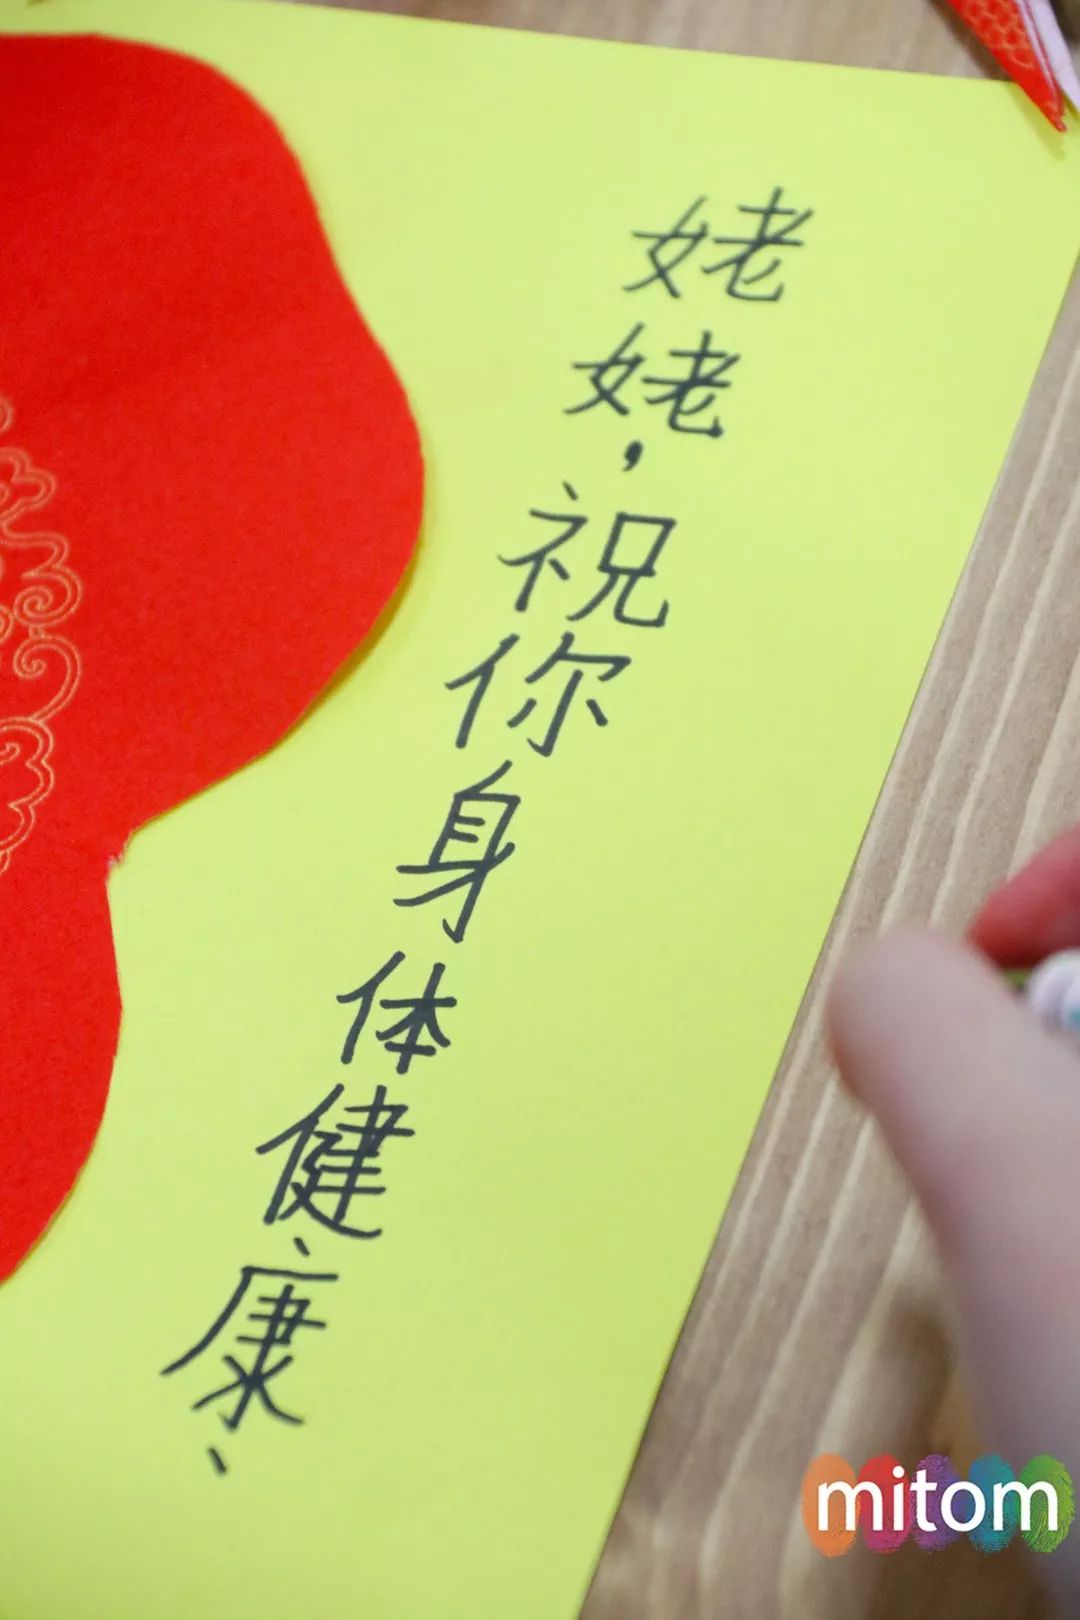 姥姥，祝你身体健康、
mitom